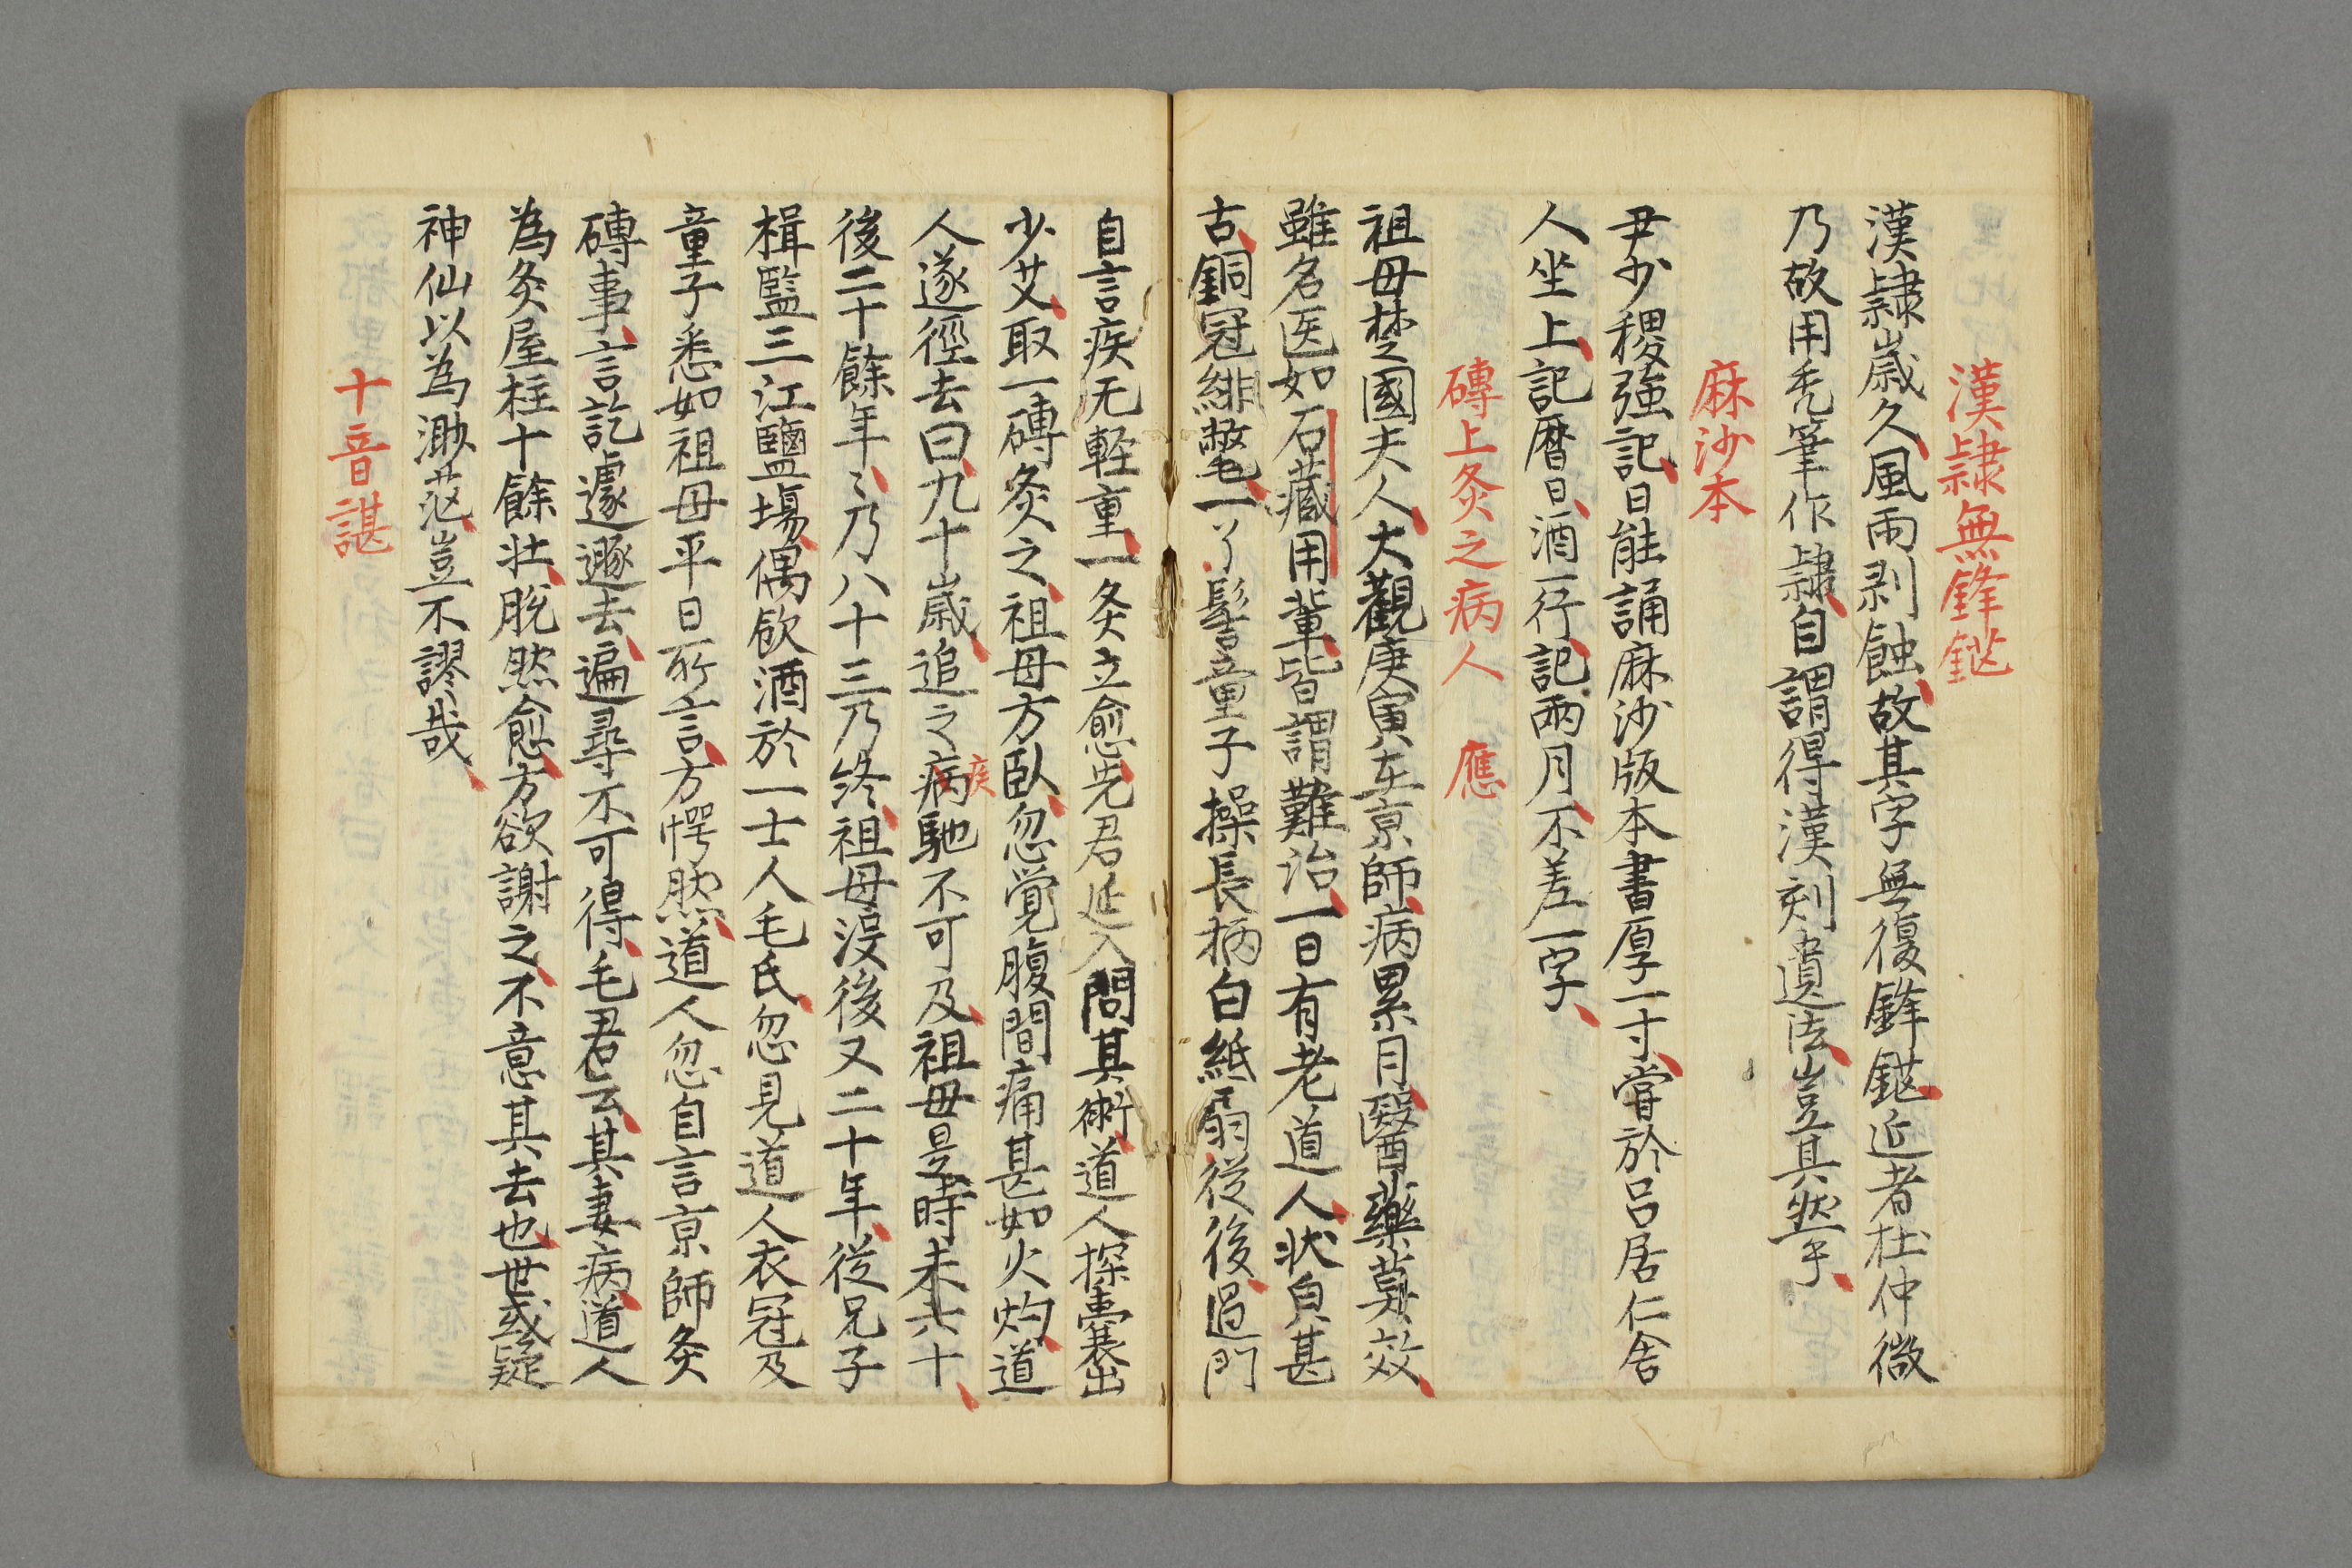 漢隷無鋒鍦
漢隷歳久風雨剥蝕故其字無復鋒鍦近者杜仲微
乃故用禿筆作隷自謂得漢刻遺法豈其然乎
麻沙本
尹少稷強記日能誦麻沙版本書厚一寸嘗於呂居仁舎
人坐上記暦日酒一行記兩月不差一字
磚上灸之病人 應
祖母楚國夫人大觀庚寅在京師病累月醫藥莫效
雖名医如石藏用輩皆謂難治一日有老道人状貌甚
古銅冠緋氅一了髻童子操長柄白紙扇従後過門
自言疾无軽重一灸立愈先君延入問其術道人探嚢出
少艾取一磚灸之祖母方臥忽覚腹間痛甚如火灼道
人遂徑去曰九十歳追之病疾馳不可及祖母是時未六十
後二十餘年〻乃八十三乃終祖母没後又二十年従兄子
楫監三江鹽場偶飲酒於一士人毛氏忽見道人衣冠及
童子悉如祖母平日所言方愕然道人忽自言京師灸
磚事言訖遽遯去遍尋不可得毛君云其妻病道人
為灸屋柱十餘壮脱然愈方欲謝之不意其去也世或疑
神仙以為渺茫豈不謬哉
十音諶